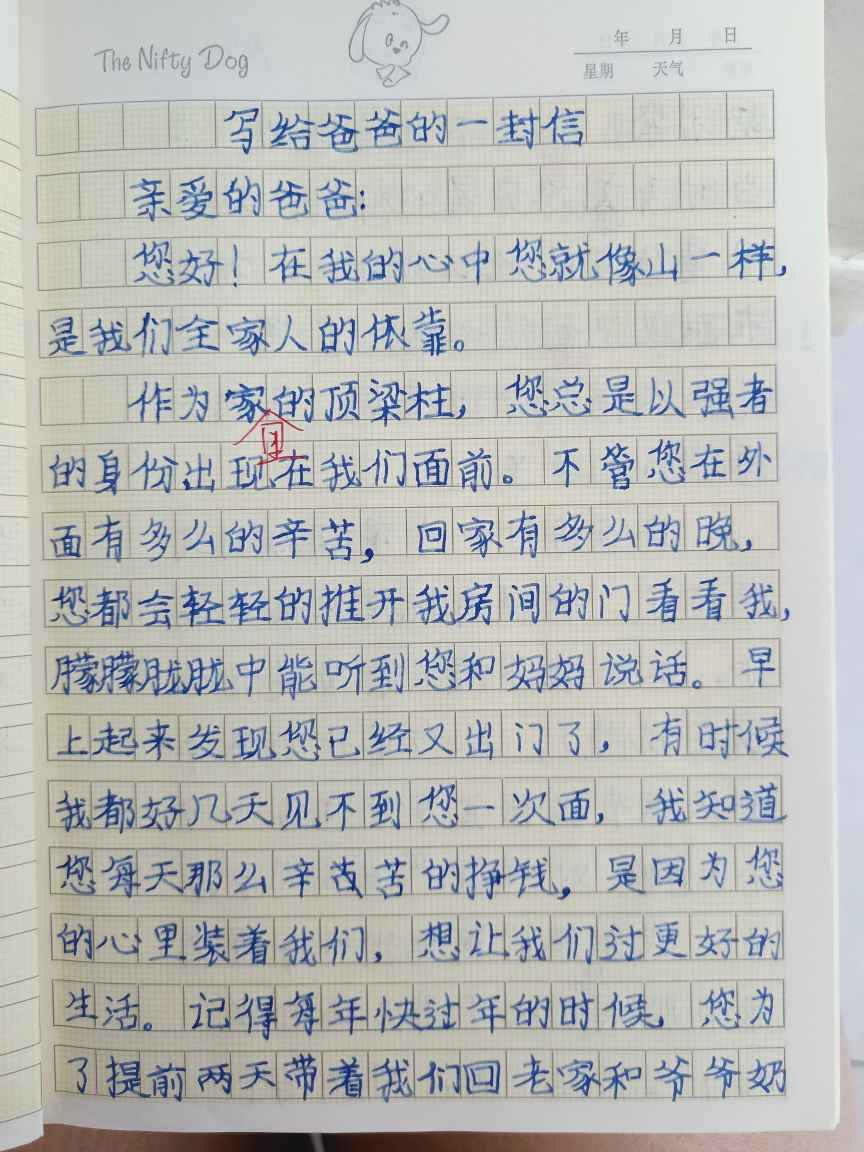 The Nifty Dog
年 月 日
星期 天气
写给爸爸的一封信
亲爱的爸爸:
您好!在我的心中您就像山一样,
是我们全家人的依靠。
作为家里的顶梁柱,您总是以强者
的身份出现在我们面前。不管您在外
面有多么的辛苦,回家有多么的晚,
您都会轻轻的推开我房间的门看看我,
朦朦胧胧中能听到您和妈妈说话。早
上起来发现您已经又出门了,有时候
我都好几天见不到您一次面,我知道
您每天那么辛苦苦的挣钱,是因为您
的心里装着我们,想让我们过更好的
生活。记得每年快过年的时候,您为
了提前两天带着我们回老家和爷爷奶